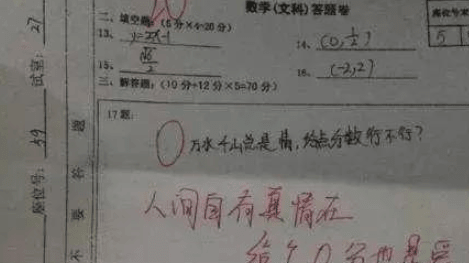 数学(文科)答题卷
座位号末
5
二、填空题:(5分×4=20分)
13、y=2x-1
14、(0,½)
15、√6/2
16、(-2,2)
三、解答题:(10分+12分×5=70分)
17题:
0
万水千山总是情,给点分数行不行?
人间自有真情在
给个0分也是爱
试室:27
座位号:59
不 要 答 题